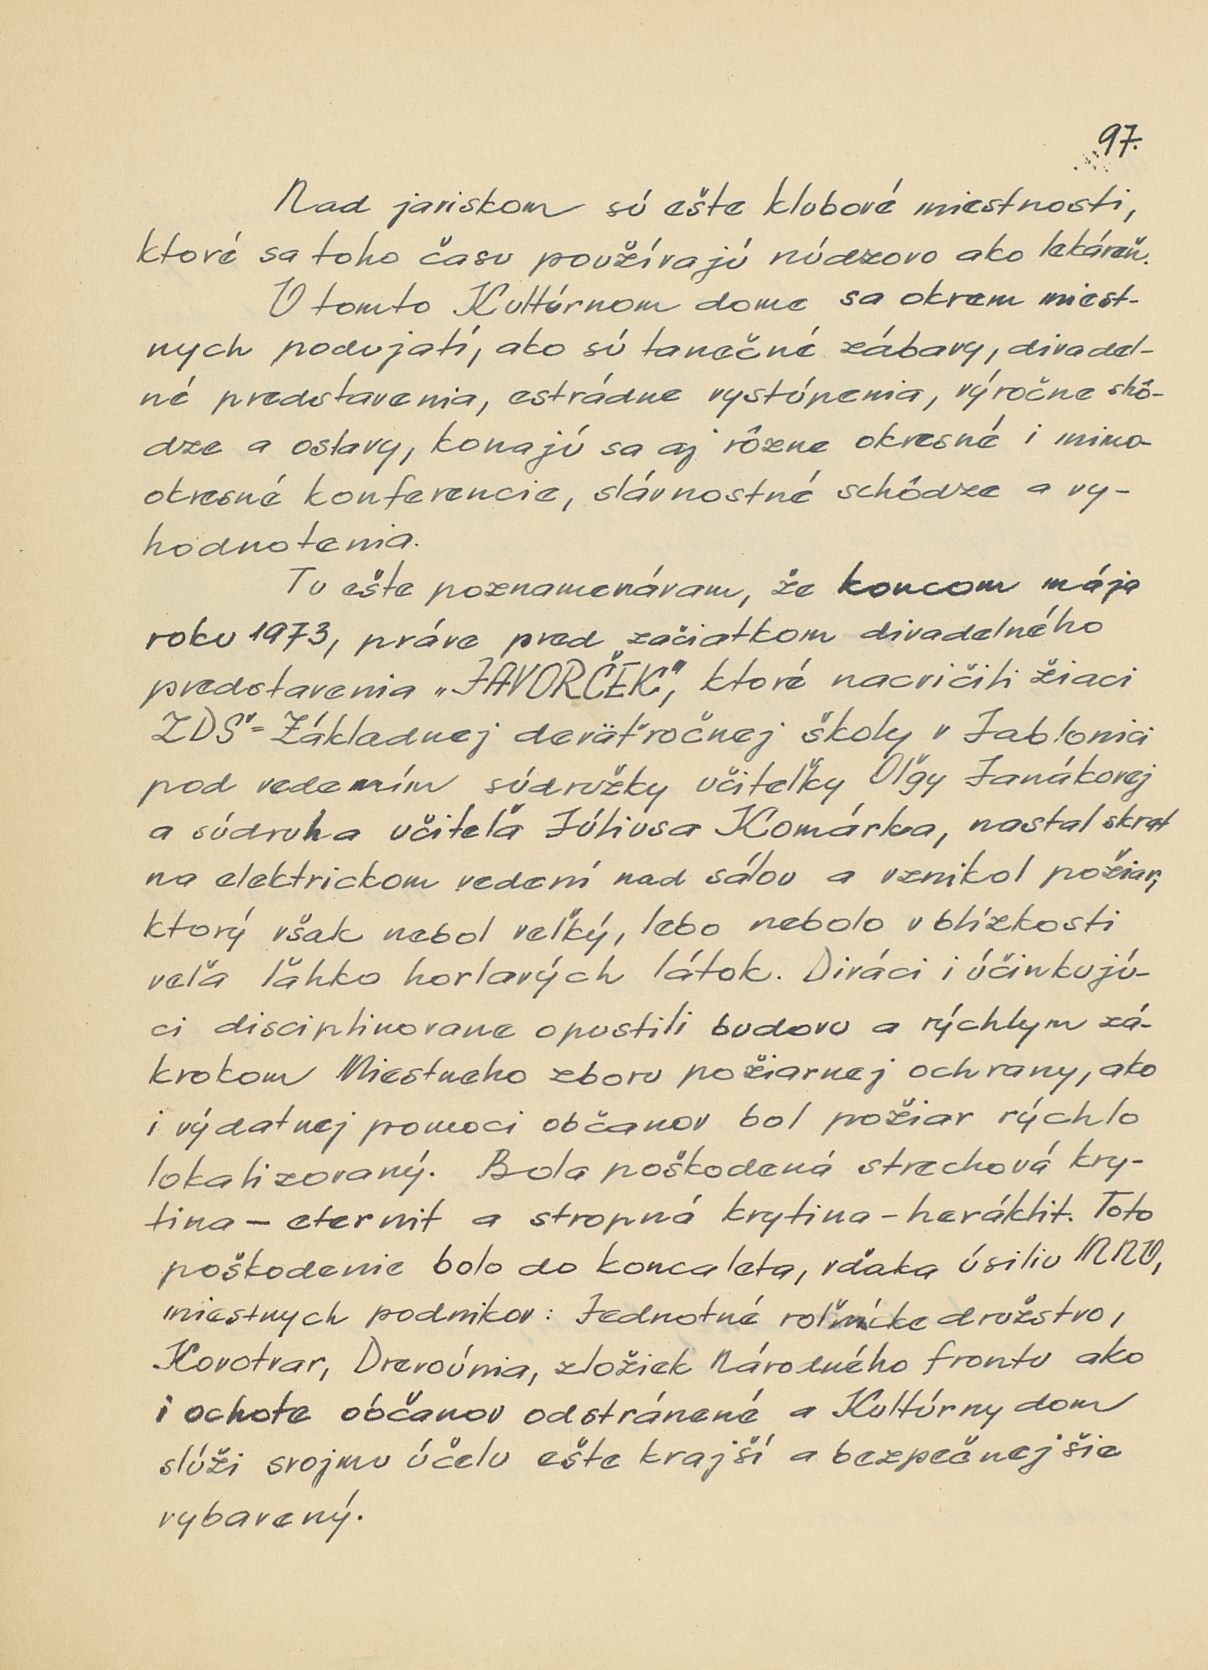 97.
Nad javiskom sú ešte klubové miestnosti,
ktoré sa toho času používajú núdzovo ako lekáreň.
V tomto Kultúrnom dome sa okrem miest-
nych podujatí, ako sú tanečné zábavy, divadel-
né predstavenia, estrádne vystúpenia, výročne shô-
dze a oslavy, konajú sa aj rôzne okresné i mimo-
okresné konferencie, slávnostné schôdze a vy-
hodnotenia.
Tu ešte poznamenávam, že koncom mája
roku 1973, práve pred začiatkom divadelného
predstavenia „JAVORČEK", ktoré nacvičili žiaci
ZDŠ - Základnej deväťročnej školy v Jablonici
pod vedením súdružky učiteľky Oľgy Janákovej
a súdruha učiteľa Júliusa Komárka, nastal skrat
na elektrickom vedení nad sálou a vznikol požiar,
ktorý však nebol veľký, lebo nebolo v blízkosti
veľa ľahko horlavých látok. Diváci i účinkujú-
ci disciplinovane opustili budovu a rýchlym zá-
krokom Miestneho zboru požiarnej ochrany, ako
i výdatnej pomoci občanov bol požiar rýchlo
lokalizovaný. Bola poškodená strechová kry-
tina - eternit a stropná krytina - heráklit. Toto
poškodenie bolo do konca leta, vďaka úsiliu MNV,
miestnych podnikov: Jednotné roľnícke družstvo,
Kovotvar, Drevoúnia, zložiek Národného frontu ako
i ochote občanov odstránené a Kultúrny dom
slúži svojmu účelu ešte krajší a bezpečnejšie
vybavený.